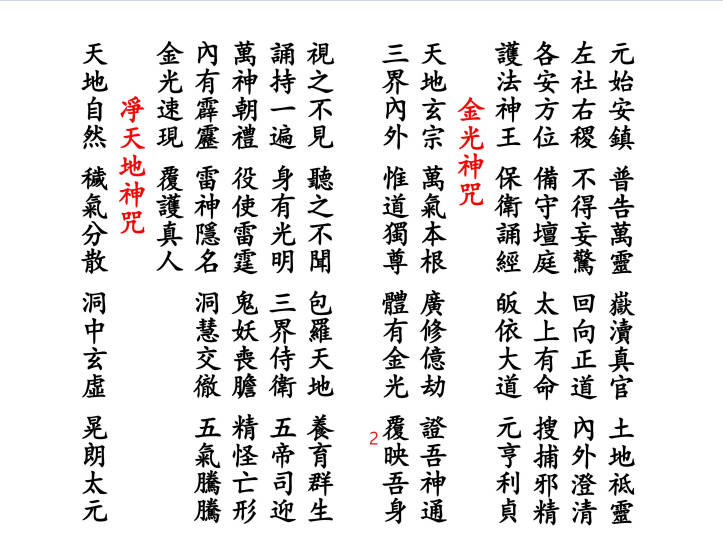 元始安鎮 普告萬靈 嶽瀆真官 土地祗靈
左社右稷 不得妄驚 回向正道 內外澄清
各安方位 備守壇庭 太上有命 搜捕邪精
護法神王 保衛誦經 皈依大道 元亨利貞
金光神咒
天地玄宗 萬氣本根 廣修億劫 證吾神通
三界內外 惟道獨尊 體有金光 覆映吾身
2
視之不見 聽之不聞 包羅天地 養育群生
誦持一遍 身有光明 三界侍衛 五帝司迎
萬神朝禮 役使雷霆 鬼妖喪膽 精怪亡形
內有霹靂 雷神隱名 洞慧交徹 五氣騰騰
金光速現 覆護真人
凈天地神咒
天地自然 穢氣分散 洞中玄虛 晃朗太元